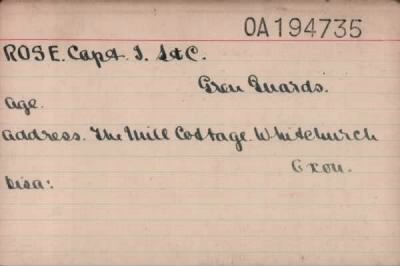 OA194735
ROSE. Capt. I. St C.
Gren Guards.
Age.
Address. The Mill Cottage. Whitchurch
Oxon.
Disa: